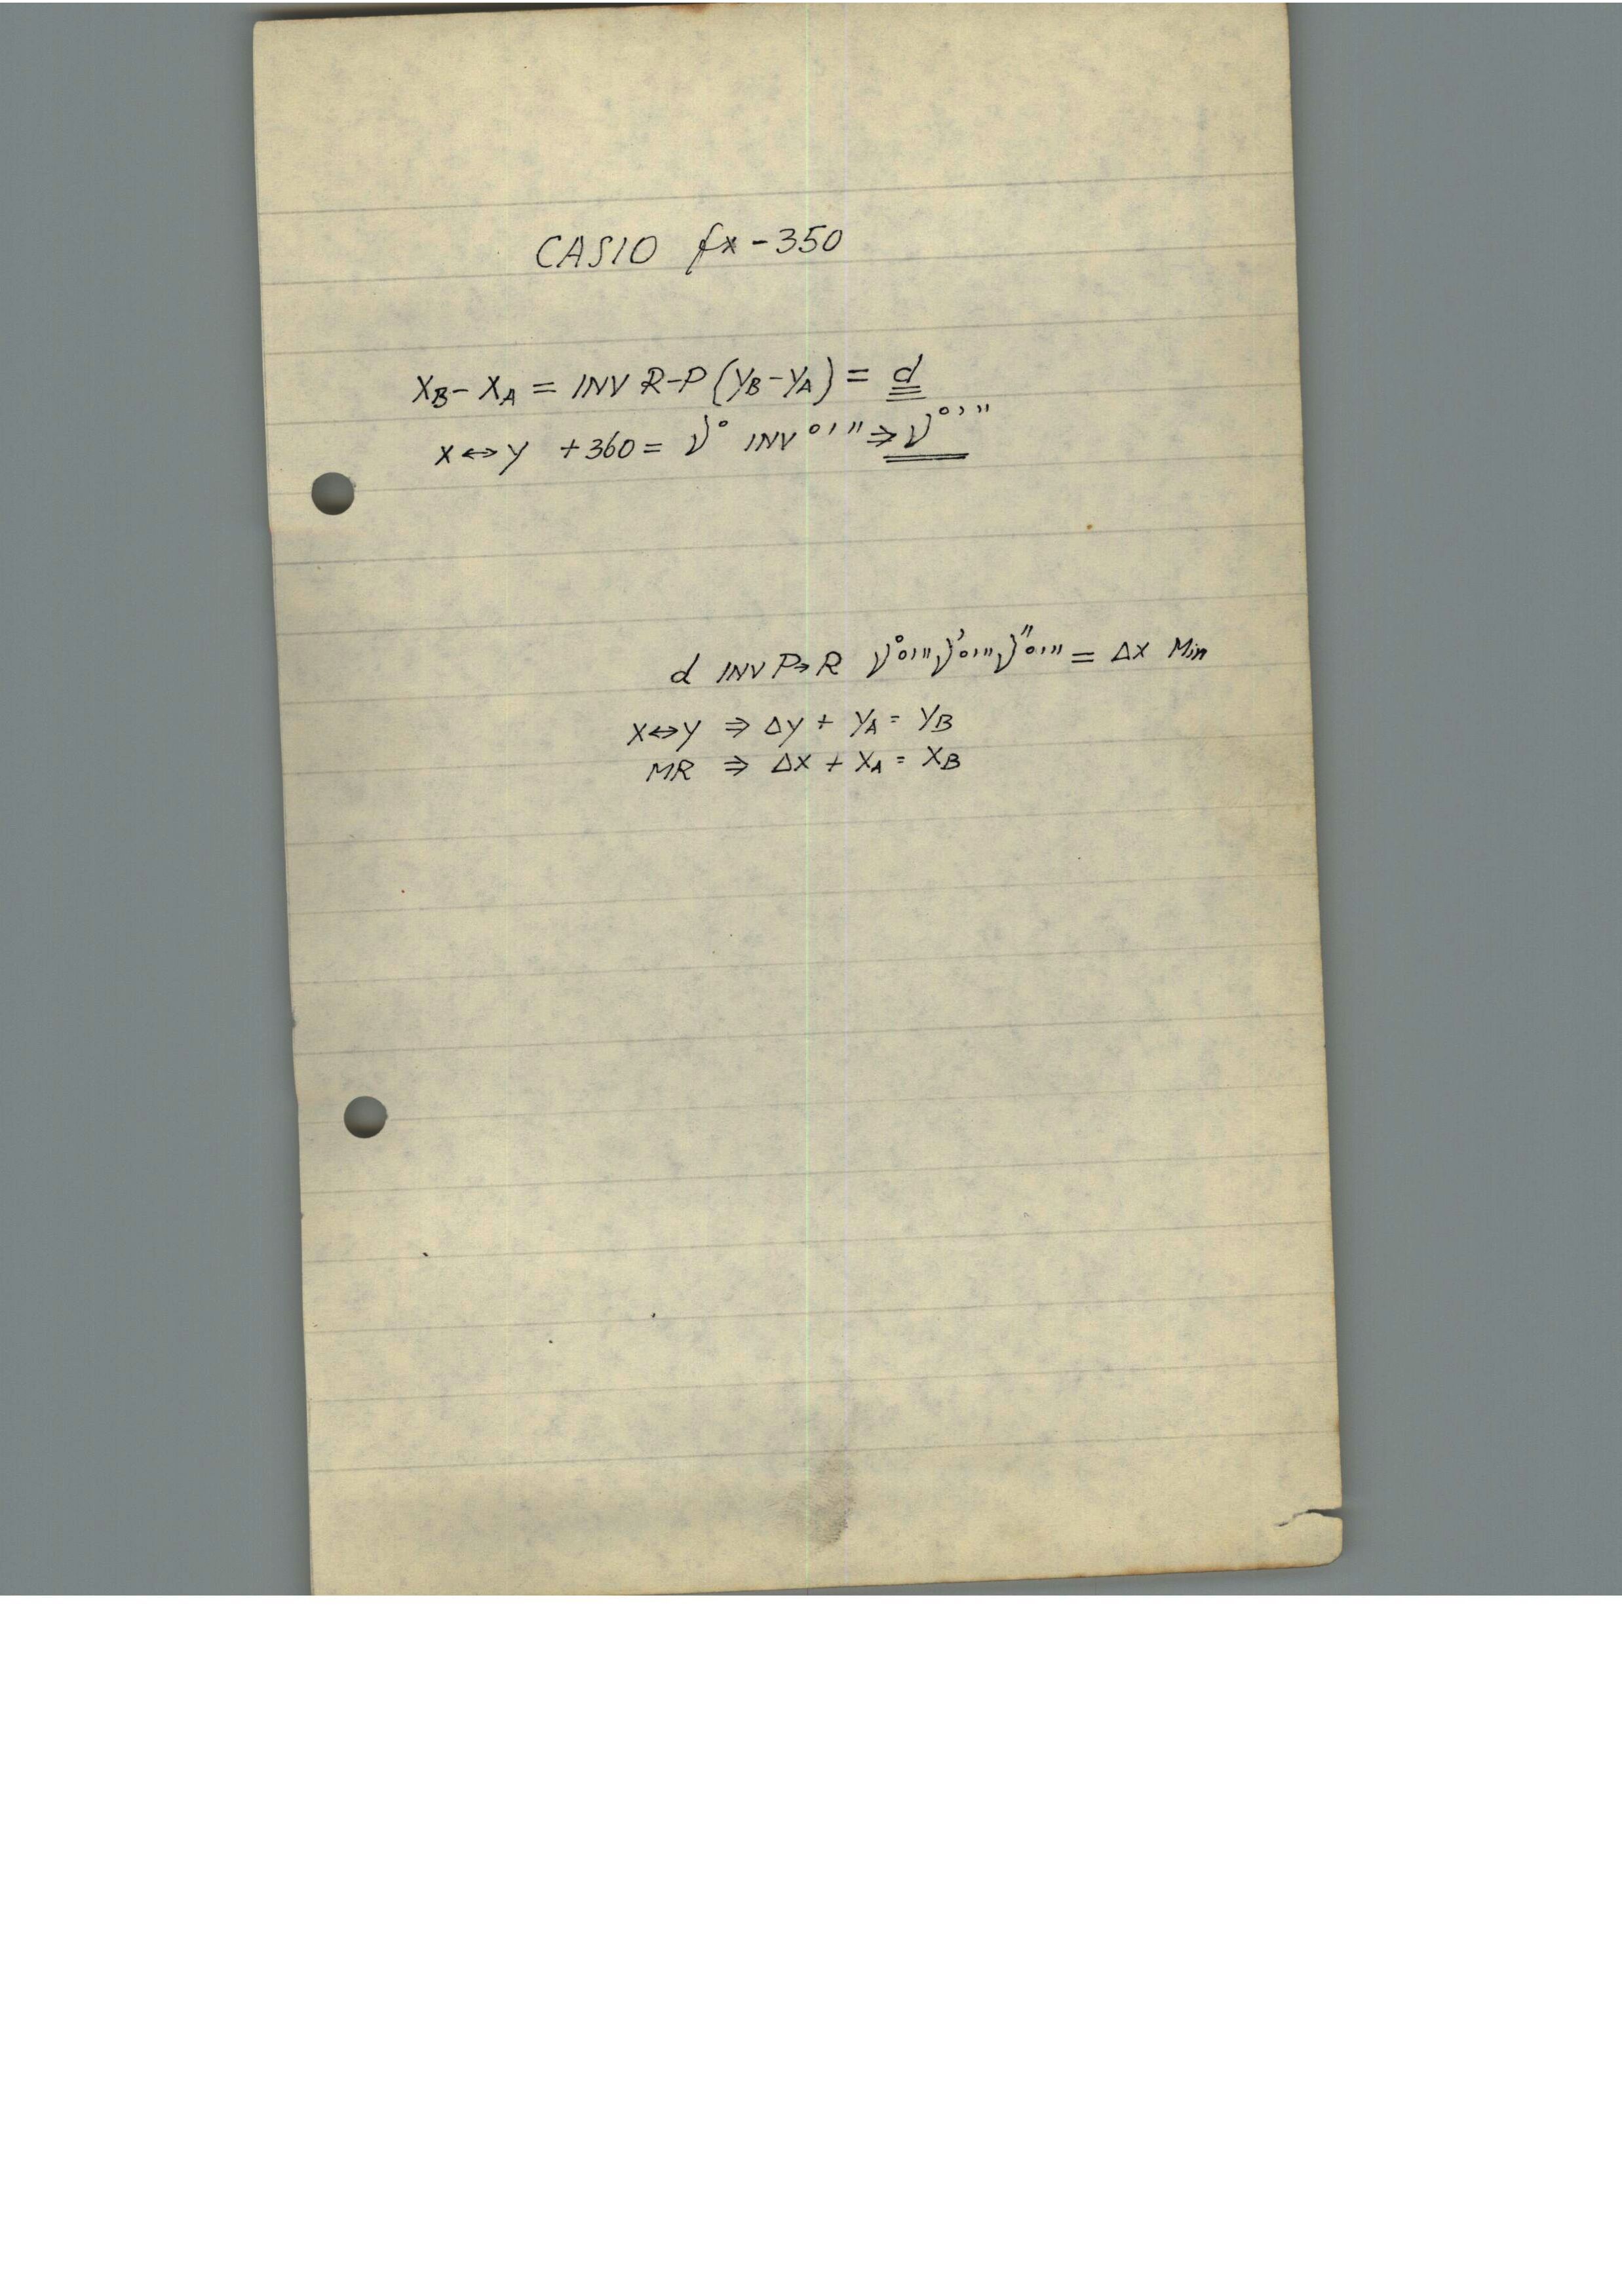 CASIO fx-350
XB - XA = INV R-P (YB - YA) = d
X↔Y +360 = ν° INV °'" ⇒ ν°'"
d INV P→R ν°°'"ν'°'"ν"°'" = ΔX Min
X↔Y ⇒ ΔY + YA = YB
MR ⇒ ΔX + XA = XB